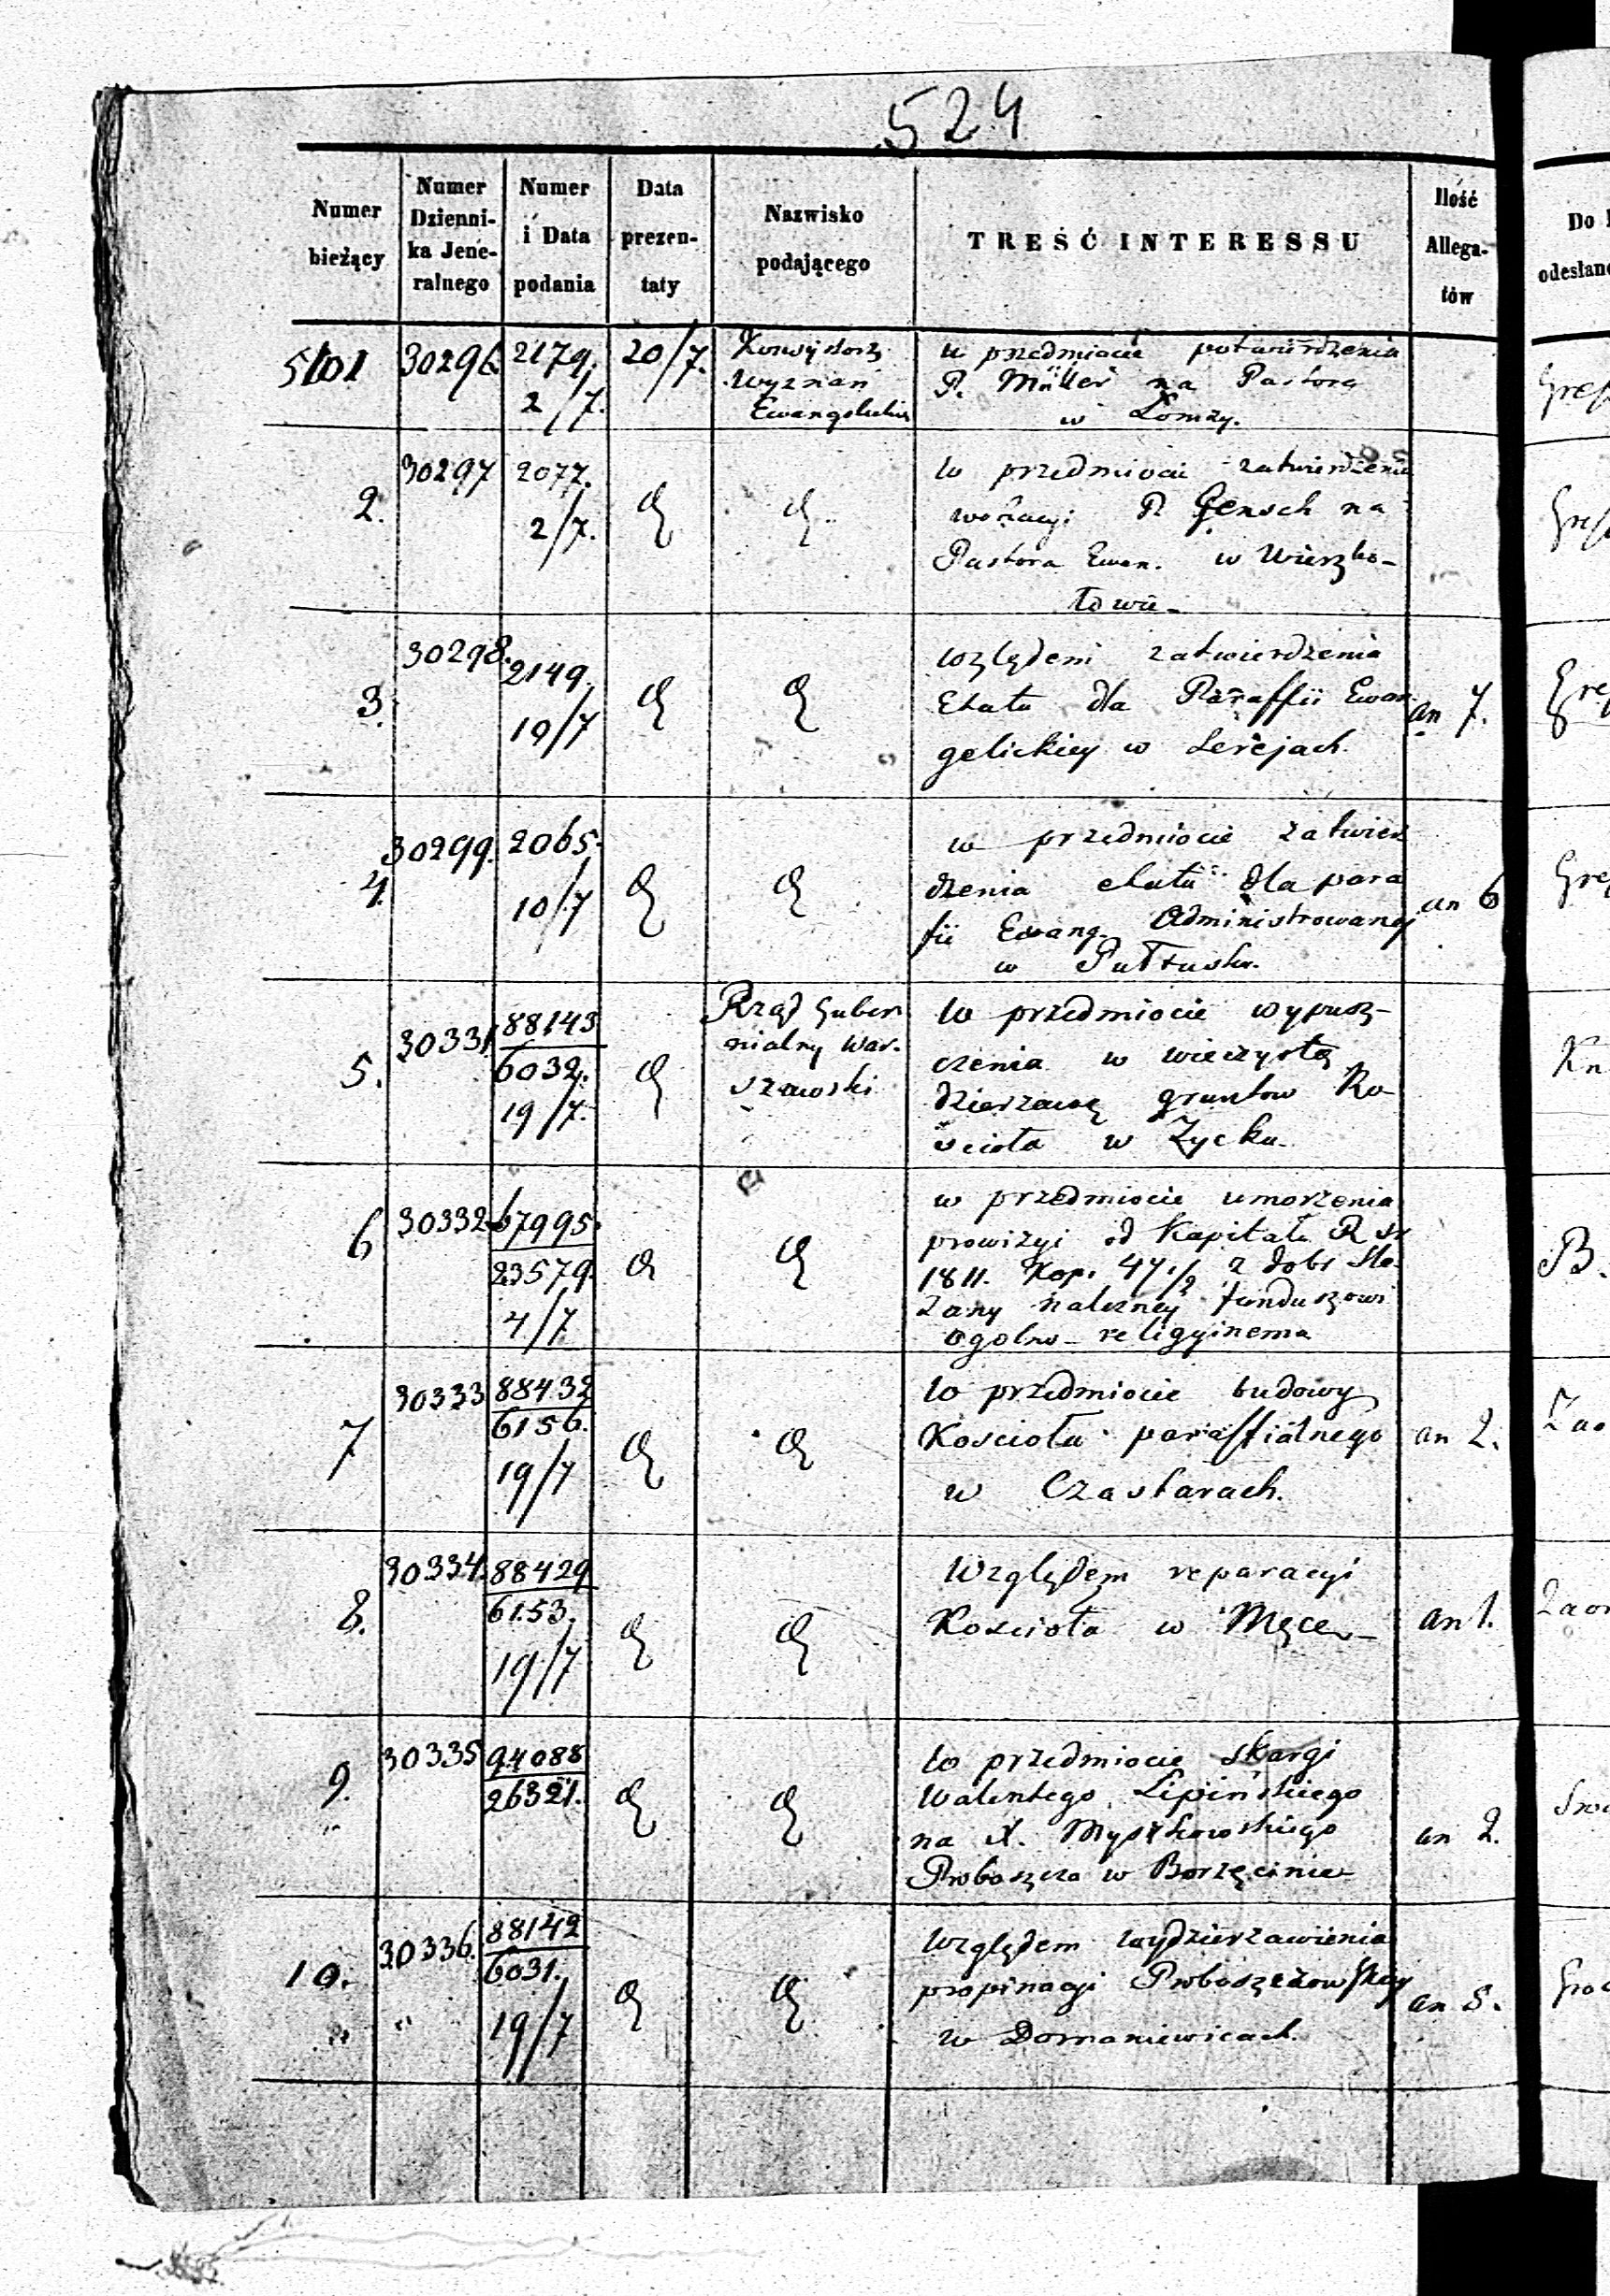 524
Numer bieżący
Numer Dzienni-
ka Jene-
ralnego
Numer
i Data
podania
Data
prezen-
taty
Nazwisko
podającego
TREŚĆ INTERESSU
Ilość
Allega-
tów
Do
odesłano
5101
30296.
2179.
2/7.
20/7.
Konsystorz
Wyznań
Ewangelickich
w przedmiocie potwierdzenia
P. Müller na Pastora
w Łomży.
2.
30297
2077.
2/7.
W przedmiocie zatwierdzenia
wokacyi P. Gensch na
Pastora Ewan. w Wierzbo-
łowie
3.
30298.
2149.
10/7
względem zatwierdzenia
Etatu dla Paraffii Ewan
gelickiey w Serejach.
an 7.
4.
30299.
2065.
10/7
w przedmiocie zatwier
dzenia etatu dla para
fii Ewang. Administrowanej
w Pułtusku.
an 6
5.
30331.
88143
6032.
19/7.
Rząd Guber
nialny War.
szawski
W przedmiocie wypusz-
czenia w wieczystą
dzierzawę gruntow Ko-
scioła w Zycku.
6
30332.
67995.
23579.
4/7.
w przedmiocie umorzenia
prowizyi od Kapitału R Sr
1811. Kop. 47 1/2 z dobr
należney funduszowi
ogolno-religyinemu
7
30333
88432
6156.
19/7
W przedmiocie budowy
Kościoła paraffialnego
w Czastarach.
an 2.
8.
30334.
88429
6153.
19/7
Względem reparacyi
Kościoła w Męce
an 1.
9.
30335
94088
26321.
W przedmiocie skargi
Walentego Lipińskiego
na X. Myszkowskiego
Proboszcza w Borzęcinie
an 2.
10.
30336.
88142
6031.
19/7
Względem wydzierzawienia
propinacyi Proboszczowskiey
w Domaniewicach.
an 8.